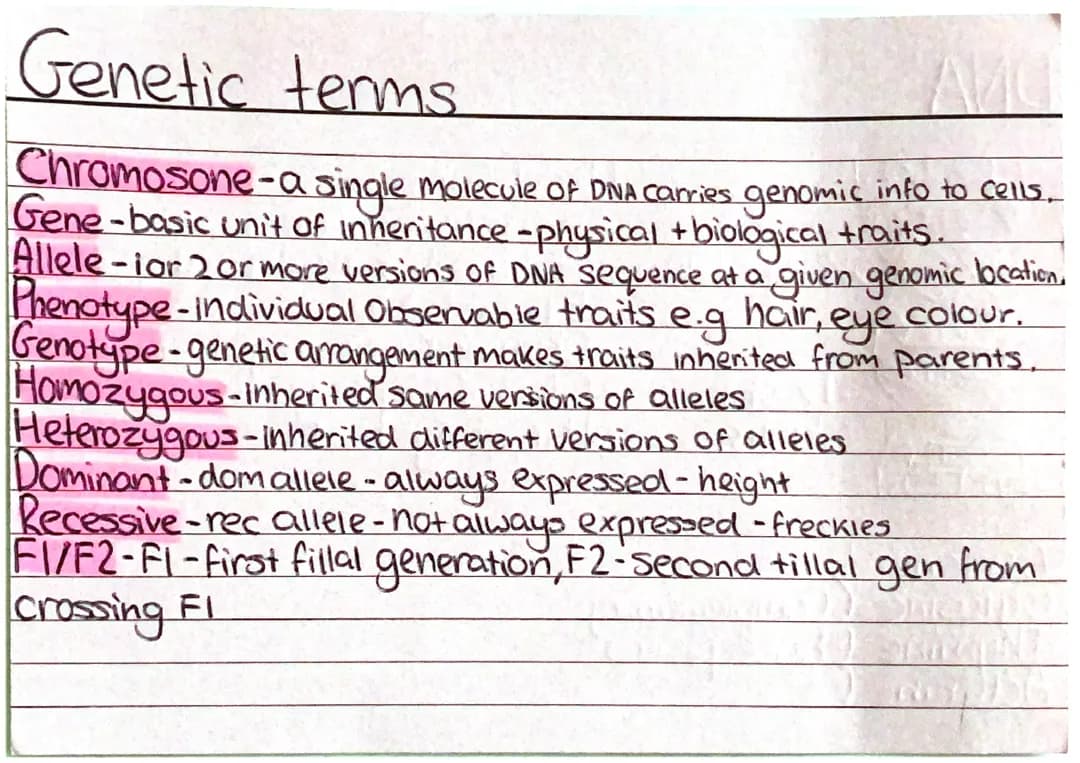 Genetic terms
Chromosone - a single molecule of DNA carries genomic info to cells.
Gene - basic unit of inheritance - physical + biological traits.
Allele - 1 or 2 or more versions of DNA sequence at a given genomic location.
Phenotype - individual observable traits e.g hair, eye colour.
Genotype - genetic arrangement makes traits inherited from parents.
Homozygous - inherited same versions of alleles
Heterozygous - inherited different versions of alleles
Dominant - dom allele - always expressed - height
Recessive - rec allele - not always expressed - freckles
F1/F2 - F1 - first fillal generation, F2 - second fillal gen from
crossing F1